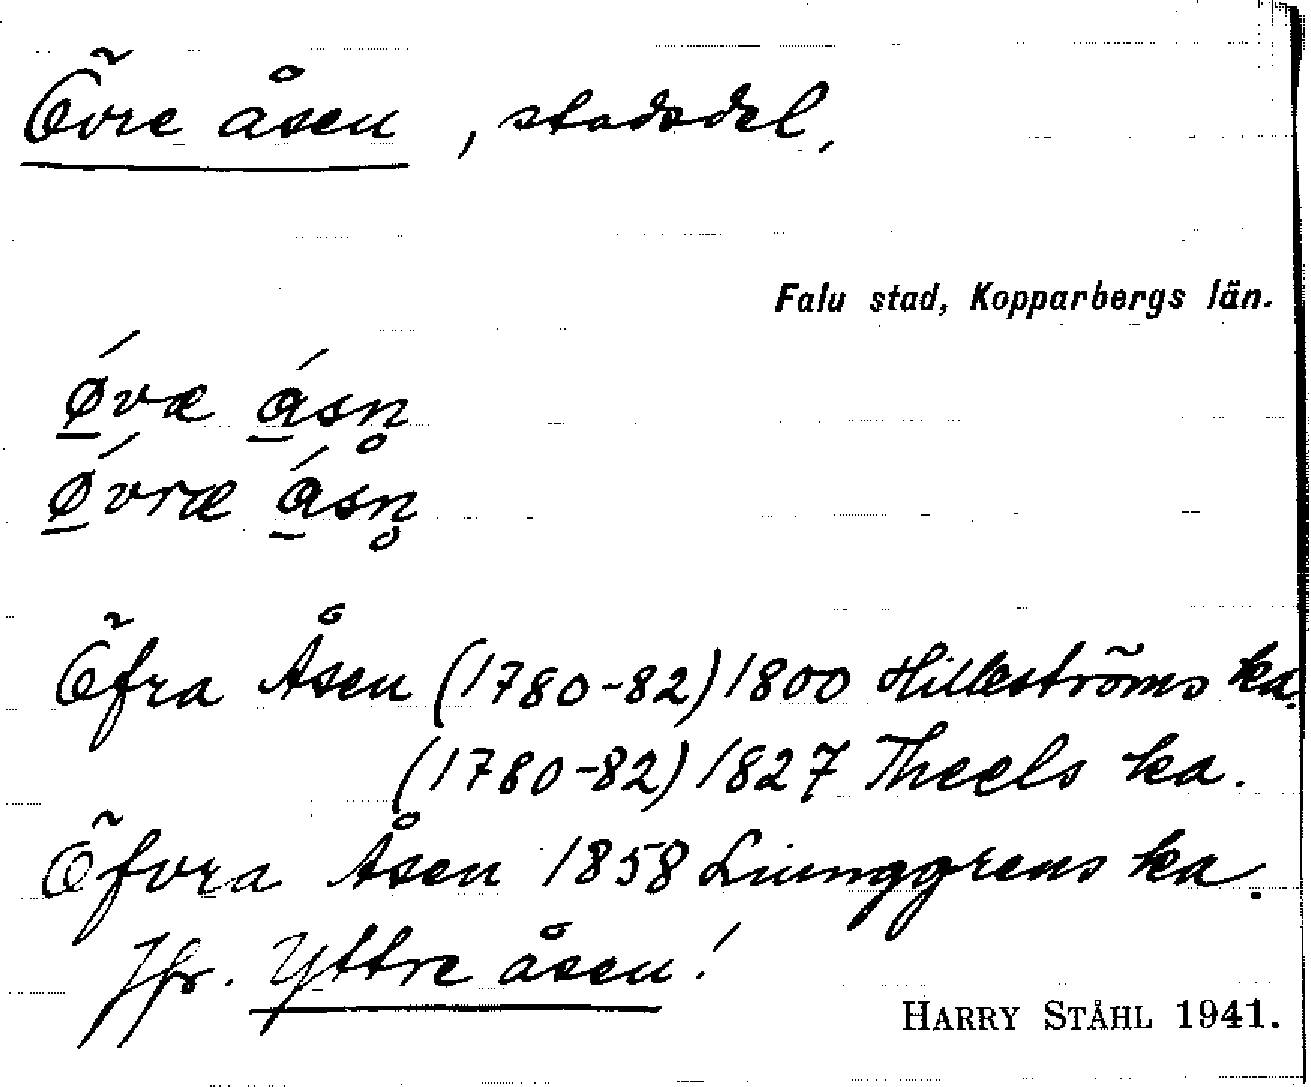 Övre åsen, stadsdel,
Falu stad, Kopparbergs län.
ǿvæ ásn̥
ǿvræ ásn̥
Öfra Åsen (1780-82) 1800 Hilleströms ka.
(1780-82) 1827 Theels ka.
Öfvra Åsen 1858 Liunggrens ka.
Jfr. Yttre åsen!
HARRY STÅHL 1941.